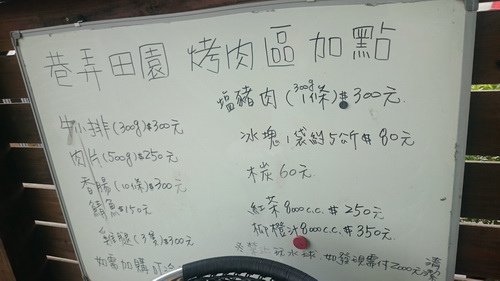 巷弄田園 烤肉區加點
牛小排(300g)$300元
肉片(500g)$250元
香腸(10條)$300元
鯖魚$150元
雞腿(3隻)$300元
如需加購
塩豬肉(300g 1條)$300元
冰塊1袋約5公斤$80元
木炭60元
紅茶8000c.c.$250元
柳橙汁8000c.c.$350元
禁止玩水球 如發現需付2000元清潔